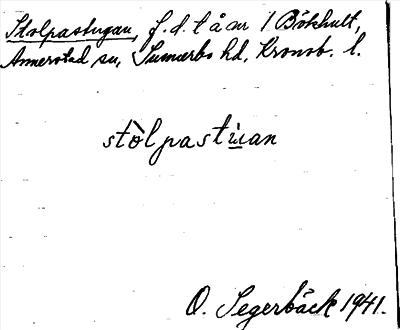 Stolpastugan, f.d. t å av / Bökhult,
Annerstad sn, Sunnerbo hd, Kronob. l.
stòlpastùan
O. Segerbäck 1941.